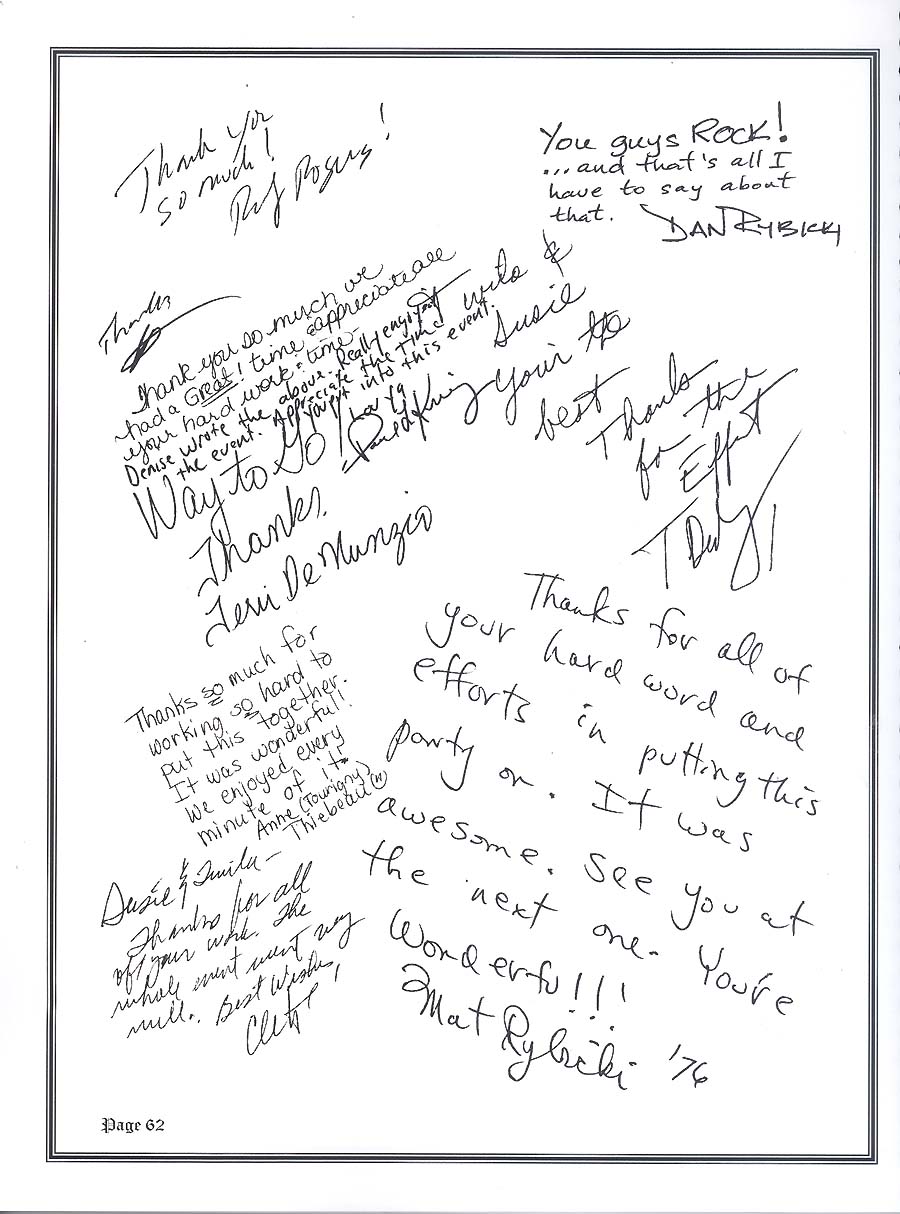 Thank you
so much!
Rogers!
You guys ROCK!
...and that's all I
have to say about
that.
DAN RYBICKI
Thanks
Thank you so much we
had a Great! time & appreciate all
your hard work & time-
Denise wrote the above. Really enjoyed
the event. Appreciate the Time
you put into this event.
David King
Twila &
Susie
Your the
best
Thanks
for the
Effort
T
Way to Go!
Thanks.
Terri DeMunzio
Thanks so much for
working so hard to
put this together.
It was wonderful!
We enjoyed every
minute of it!
Anne (Tourigny)
Thiebeau
Thanks for all of
your hard word and
efforts in putting this
party on. It was
awesome. See you at
the next one. You're
Wonderful!!!
Mat Rybicki '76
Susie & Twila-
Thanks for all
of your work. The
whole event went very
well. Best Wishes,
Page 62